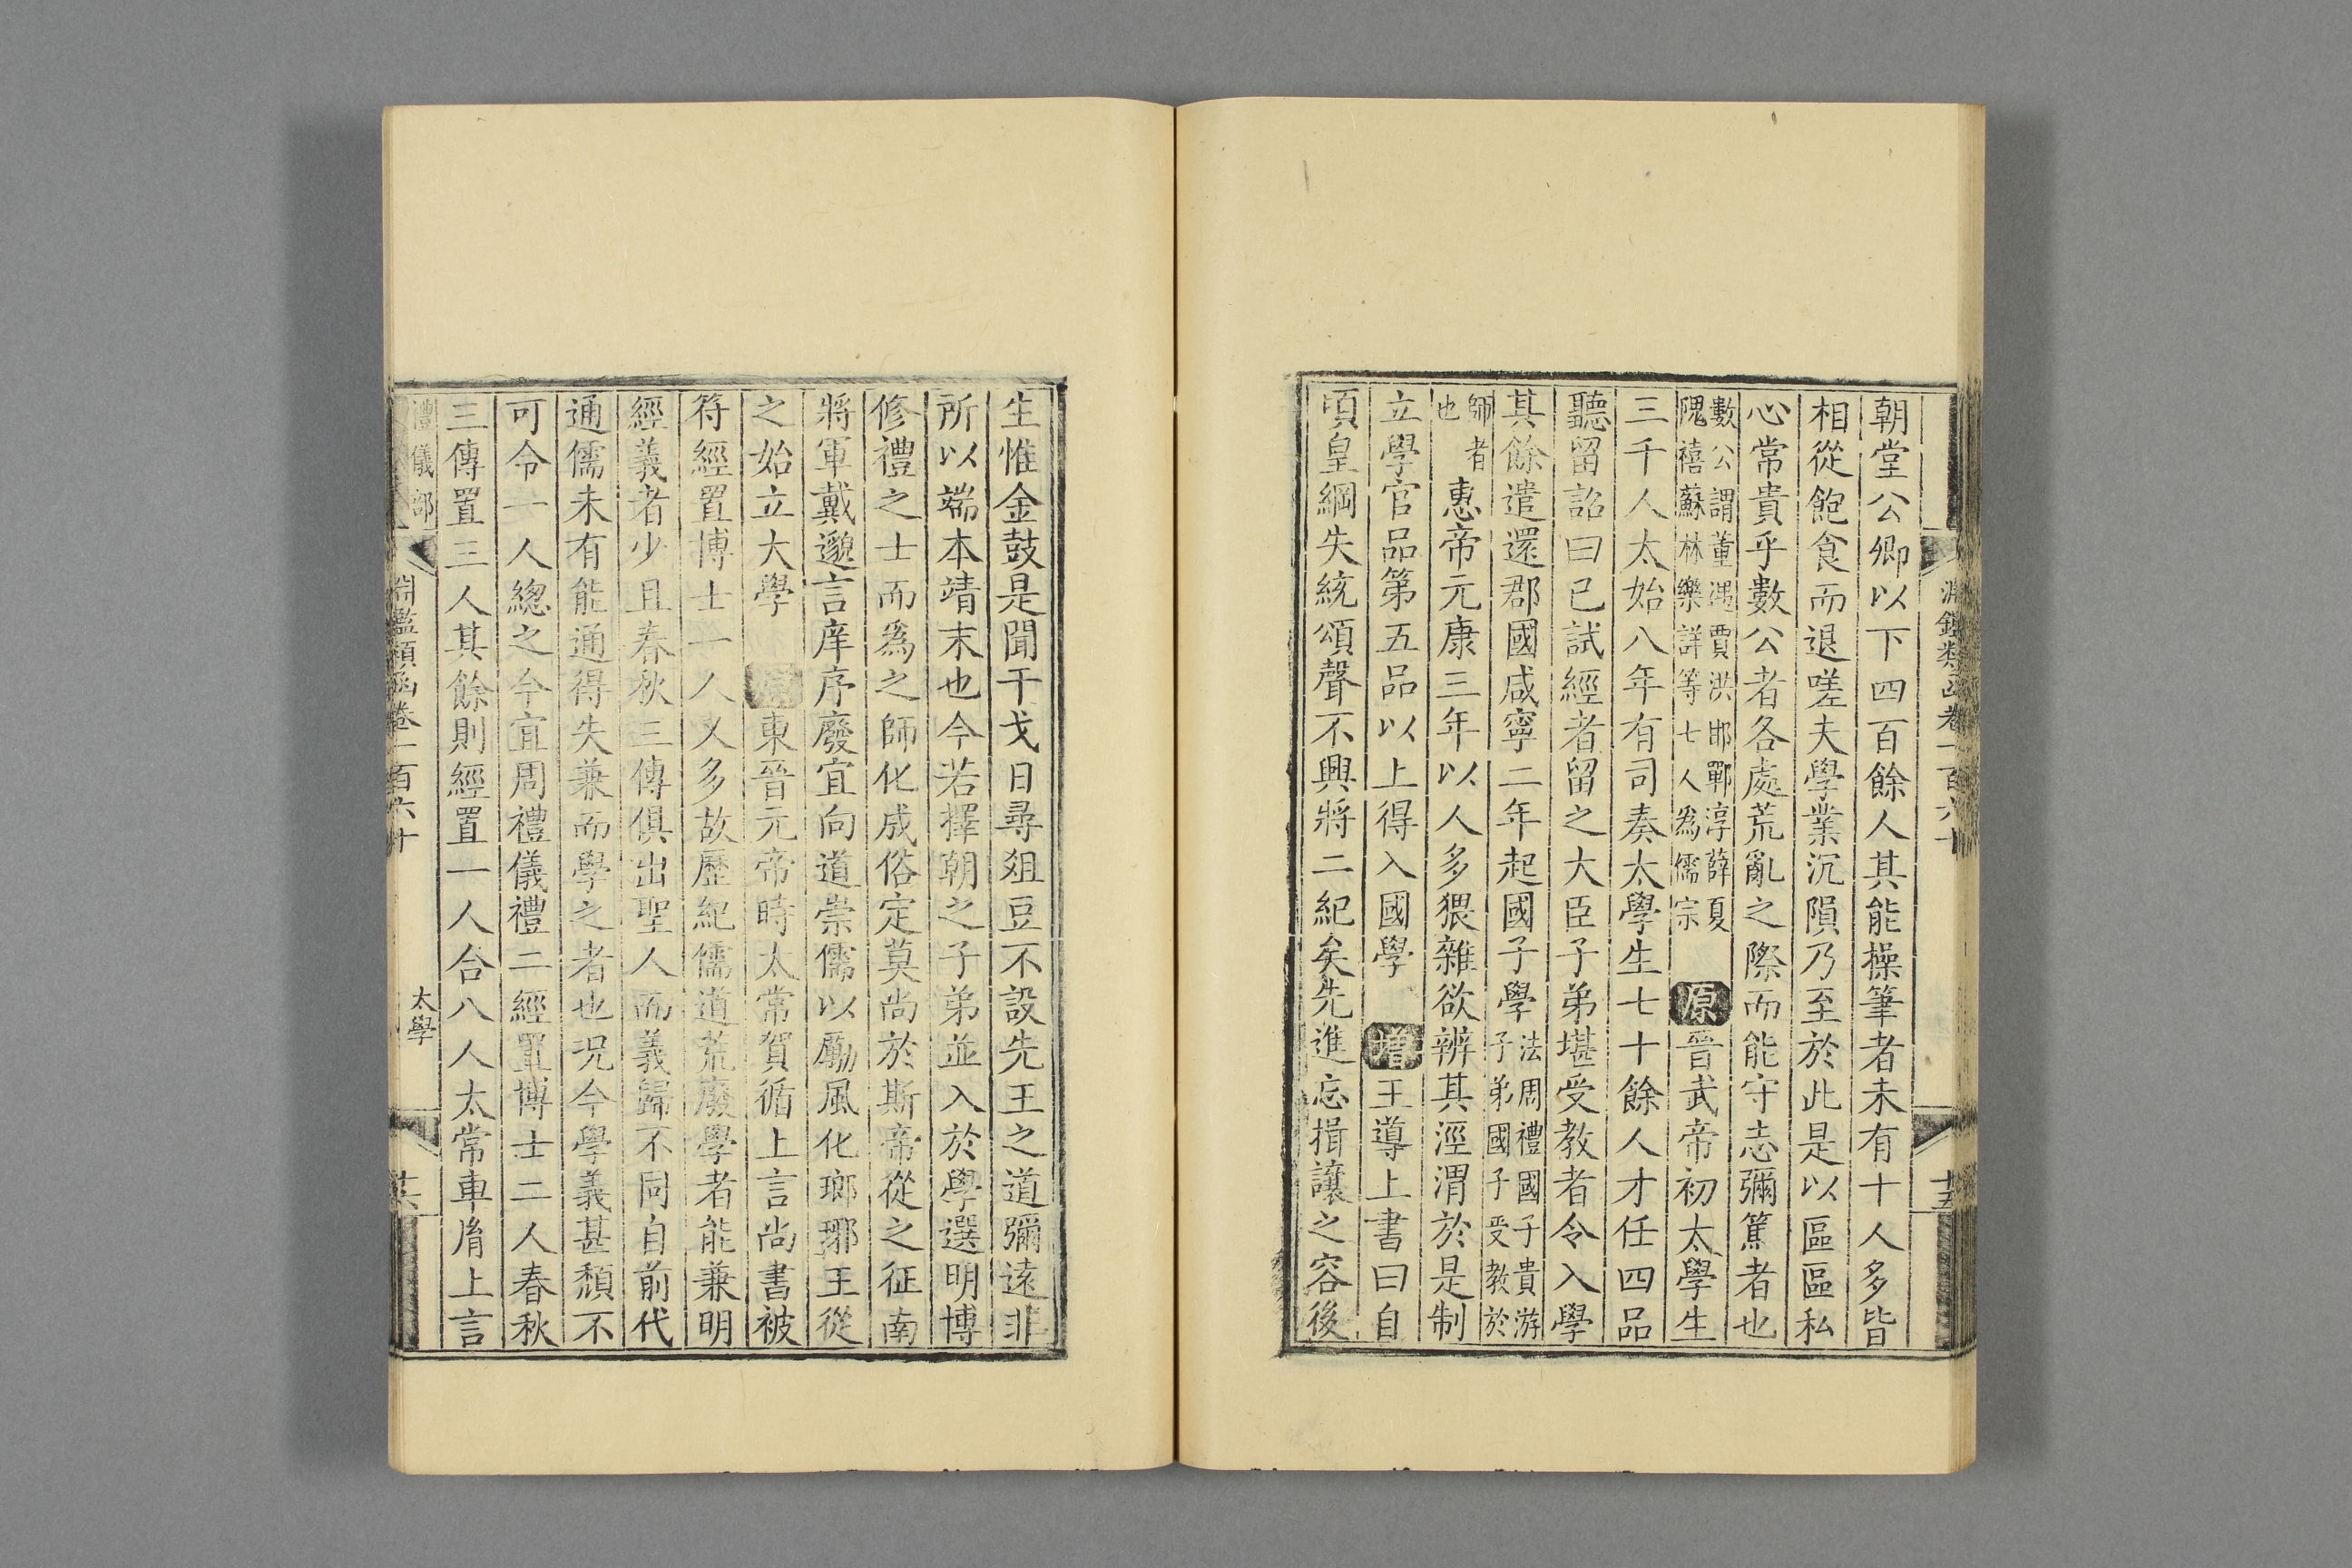 淵鑑類函卷一百六十
十五
朝堂公卿以下四百餘人其能操筆者未有十人多皆
相從飽食而退嗟夫學業沉隕乃至於此是以區區私
心常貴乎數公者各處荒亂之際而能守志彌篤者也
數公謂董遇賈洪邯鄲淳薛夏
隗禧蘇林樂詳等七人為儒宗
原晉武帝初太學生
三千人太始八年有司奏太學生七十餘人才任四品
聽留詔曰已試經者留之大臣子弟堪受教者令入學
其餘遣還郡國咸寧二年起國子學
法周禮國子貴游
子弟國子受教於
師者
也
惠帝元康三年以人多猥雜欲辨其涇渭於是制
立學官品第五品以上得入國學增王導上書曰自
頃皇綱失統頌聲不興將二紀矣先進忘揖讓之容後
生惟金鼓是聞干戈日尋俎豆不設先王之道彌遠非
所以端本靖末也今若擇朝之子弟並入於學選明博
修禮之士而為之師化成俗定莫尚於斯帝從之征南
將軍戴邈言庠序廢宜向道崇儒以勵風化瑯琊王從
之始立大學原東晉元帝時太常賀循上言尚書被
符經置博士一人又多故歷紀儒道荒廢學者能兼明
經義者少且春秋三傳俱出聖人而義歸不同自前代
通儒未有能通得失兼而學之者也況今學義甚頹不
可令一人總之今宜周禮儀禮二經置博士二人春秋
三傳置三人其餘則經置一人合八人太常車胤上言
禮儀部
淵鑑類函卷一百六十
太學
十六